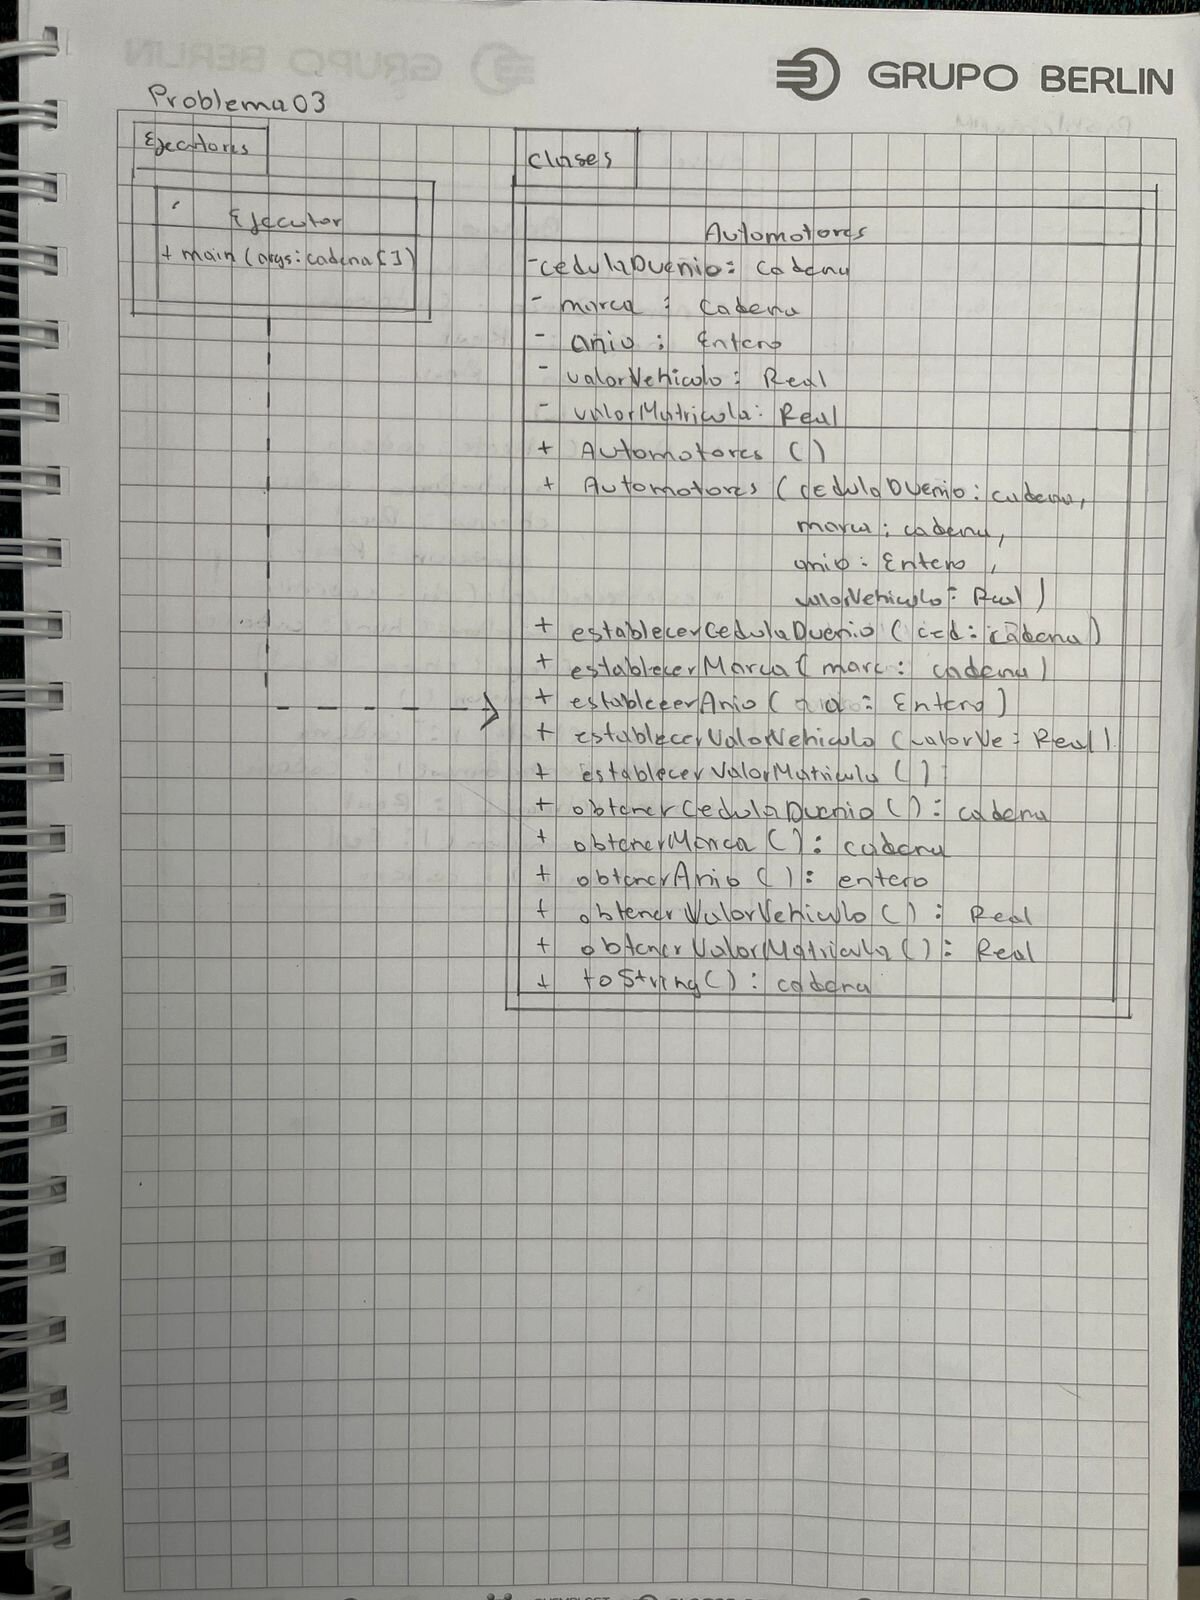 GRUPO BERLIN
Problema03
Ejecutores
Ejecutor
+ main (args: cadena[])
clases
Automotores
- cedulaDuenio: cadena
- marca : cadena
- anio : Entero
- valorVehiculo : Real
- valorMatricula: Real
+ Automotores ()
+ Automotores (cedulaDuenio: cadena,
marca: cadena,
anio : Entero ,
valorVehiculo : Real)
+ establecerCedulaDuenio (ced: cadena)
+ establecerMarca ( marc : cadena)
+ establecerAnio ( a : Entero)
+ establecerValorVehiculo (valorVe : Real)
+ establecerValorMatricula ()
+ obtenerCedulaDuenio () : cadena
+ obtenerMarca () : cadena
+ obtenerAnio () : entero
+ obtenerValorVehiculo () : Real
+ obtenerValorMatricula () : Real
+ toString() : cadena